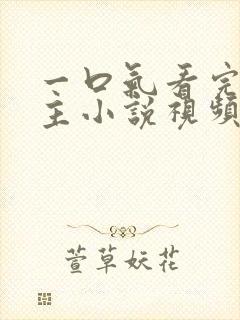 一口氣看完
主小説視頻
萱草妖花